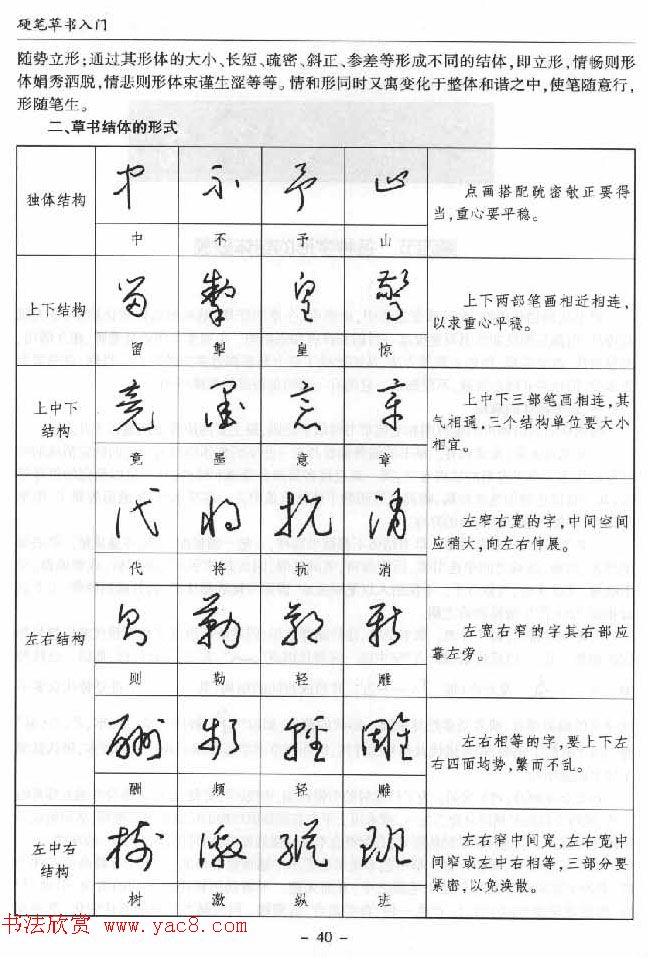 硬笔草书入门
随势立形;通过其形体的大小、长短、疏密、斜正、参差等形成不同的结体,即立形,情畅则形
体娟秀洒脱,情悲则形体束谨生涩等等。情和形同时又寓变化于整体和谐之中,使笔随意行,
形随笔生。
二、草书结体的形式
独体结构
中 不 予 山
点画搭配疏密敧正要得
当,重心要平稳。
上下结构
留 皇 惊
上下两部笔画相近相连,
以求重心平稳。
上中下
结构
竟 墨 意 章
上中下三部笔画相连,其
气相通,三个结构单位要大小
相宜。
代 将 抗 消
左窄右宽的字,中间空间
应稍大,向左右伸展。
左右结构
则 勒
左宽右窄的字其右部应
靠左旁。
酬 频 轻 雕
左右相等的字,要上下左
右四面均势,繁而不乱。
左中右
结构
树 激 纵 班
左右窄中间宽,左右宽中
间窄或左中右相等,三部分要
紧密,以免涣散。
书法欣赏 www.yac8.com
- 40 -